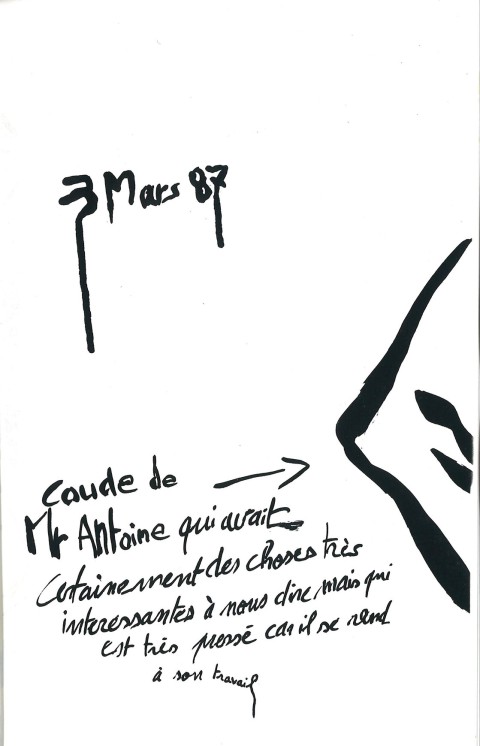 3 Mars 87
coude de
Mr Antoine qui avait
certainement des choses très
interessantes à nous dire mais qui
est très pressé car il se rend
à son travail